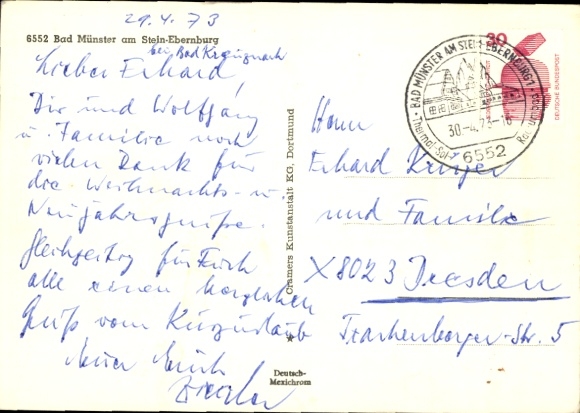 29.4.73
6552 Bad Münster am Stein-Ebernburg
bei Bad Kreuznach
Lieber Erhard,
Dir und Wolfgang
u. Familie noch
vielen Dank für
die Weihnachts- u.
Neujahrsgrüße.
Gleichzeitig für Euch
alle einen herzlichen
Gruß vom Kurzurlaub
Euer Erich
Cramers Kunstanstalt KG, Dortmund
Deutsch-
Mexichrom
30
DEUTSCHE BUNDESPOST
BAD MÜNSTER AM STEIN-EBERNBURG 1
30.-4.73-16
6552
Herrn
Erhard Krüger
und Familie
X8023 Dresden
Trachenberger-Str. 5